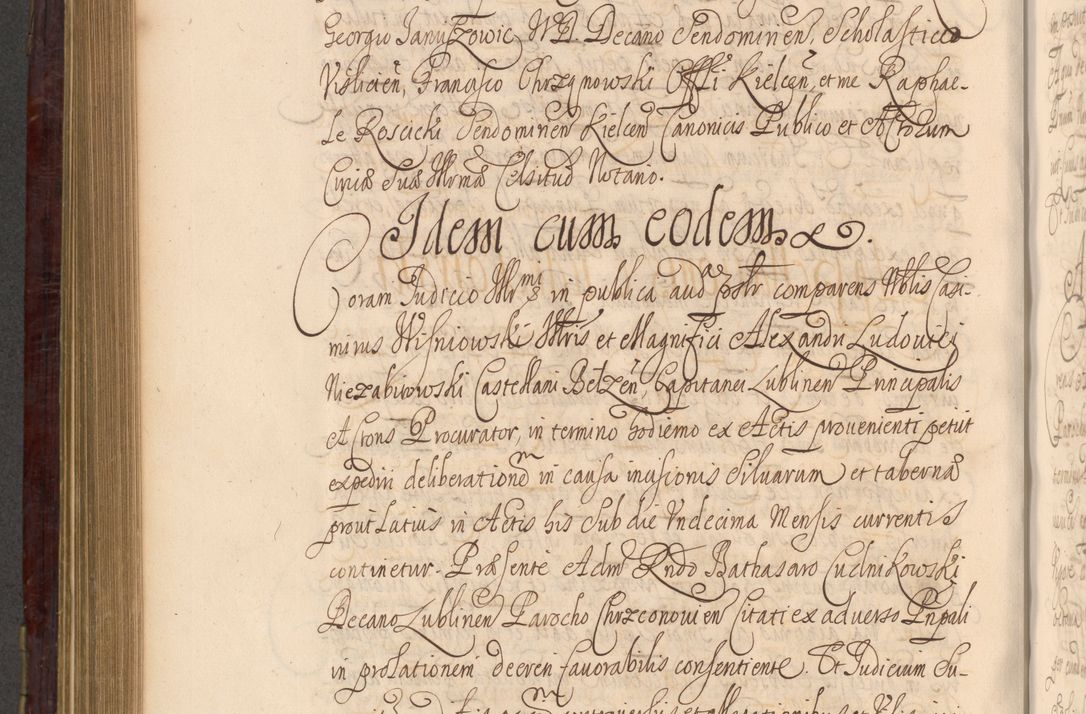 Georgio Januszowic, N.D. Decano Sendominen, Scholastico
Visliceñ, Francisco Chrząnowski Offli Kielceñ, et me Raphae-
le Roscicki Sendominen Kielcen Canonicis Publico et Actorum
Curiæ Suæ Illrmæ Celsitud Notario.
Idem cum eodem &.
Coram Judicio Illrmi s in publica aud pstr comparens Nblis Casi-
mirus Wisniowski Illris et Magnifici Alexandri Ludovici
Niezabitowski Castellani Belzeñ, Capitanei Lublinen Principalis
Actons Procurator, in termino hodierno ex Actis provenienti petiit
expediri deliberationem in causa incisionis Silvarum et tabernæ
prout Latius in Actis his sub die Undecima Mensis currentis
continetur. Præsente Adm Rndo Balthasaro Cudnikowski
Decano Lublinen Parocho Chrzconovien Citati ex adverso Pnpali
in prolationem decreti favorabilis consentiente. Et Judicium Su-